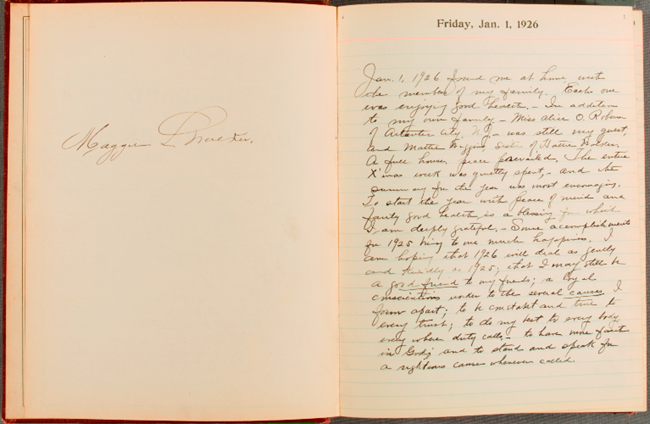 Maggie L. Walker.
Friday, Jan. 1, 1926
Jan. 1, 1926 found me at home with
the members of my family. Each one
was enjoying good health. – In addition
to my own family – Miss Alice O.
of Atlantic City, N.J. – was still my guest,
and Mattie sister of Hattie
A full house, peace prevailed. The entire
X'mas week was quietly spent, – and the
summary for the year was most encouraging.
To start the year with peace of mind and
fairly good health, is a blessing for which
I am deeply grateful. – Some accomplishments
for 1925 bring to me much happiness. I
am hoping that 1926 will deal as gently
and kindly as 1925; that I may still be
a good friend to my friends; a loyal
worker to the several causes I
form a part; to be constant and true to
every trust; to do my best to every body
every where duty calls – to have more faith
in God; and to stand and speak for
a righteous cause wherever called.